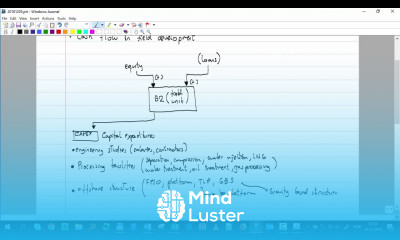 20181009.jnt - Windows Journal
File Edit View Insert Actions Tools Help
• Cash flow in field development
equity (loans)
($) ($)
B2 (field unit)
CAPEX Capital expenditures
• engineering studies (salaries, contractors)
• Processing facilities (separation, compression, water injection, LNG
water treatment, oil treatment, gas processing)
• offshore structure (FPSO, platform, TLP, GBS
platform Gravity based structure
Mind
Luster